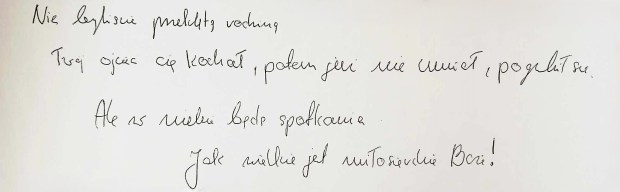 Nie byliście przeklętą rodziną
Twój ojciec cię kochał, potem już nie umiał, pogubił się.
Ale w niebie będą spotkania
Jak wielkie jest miłosierdzie Boże!